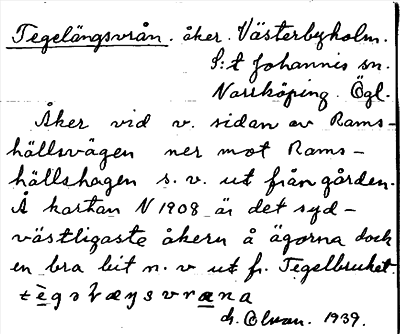 Tegelängsvrån. åker. Västerbyholm.
S:t Johannis sn.
Norrköping. Ögl.
Åker vid v. sidan av Rams-
hällsvägen ner mot Rams-
hällshagen s.v. ut från gården.
Å kartan N 1908 är det syd-
västligaste åkern å ägorna dock
en bra bit n.v ut fr. Tegelbruket.
1939.